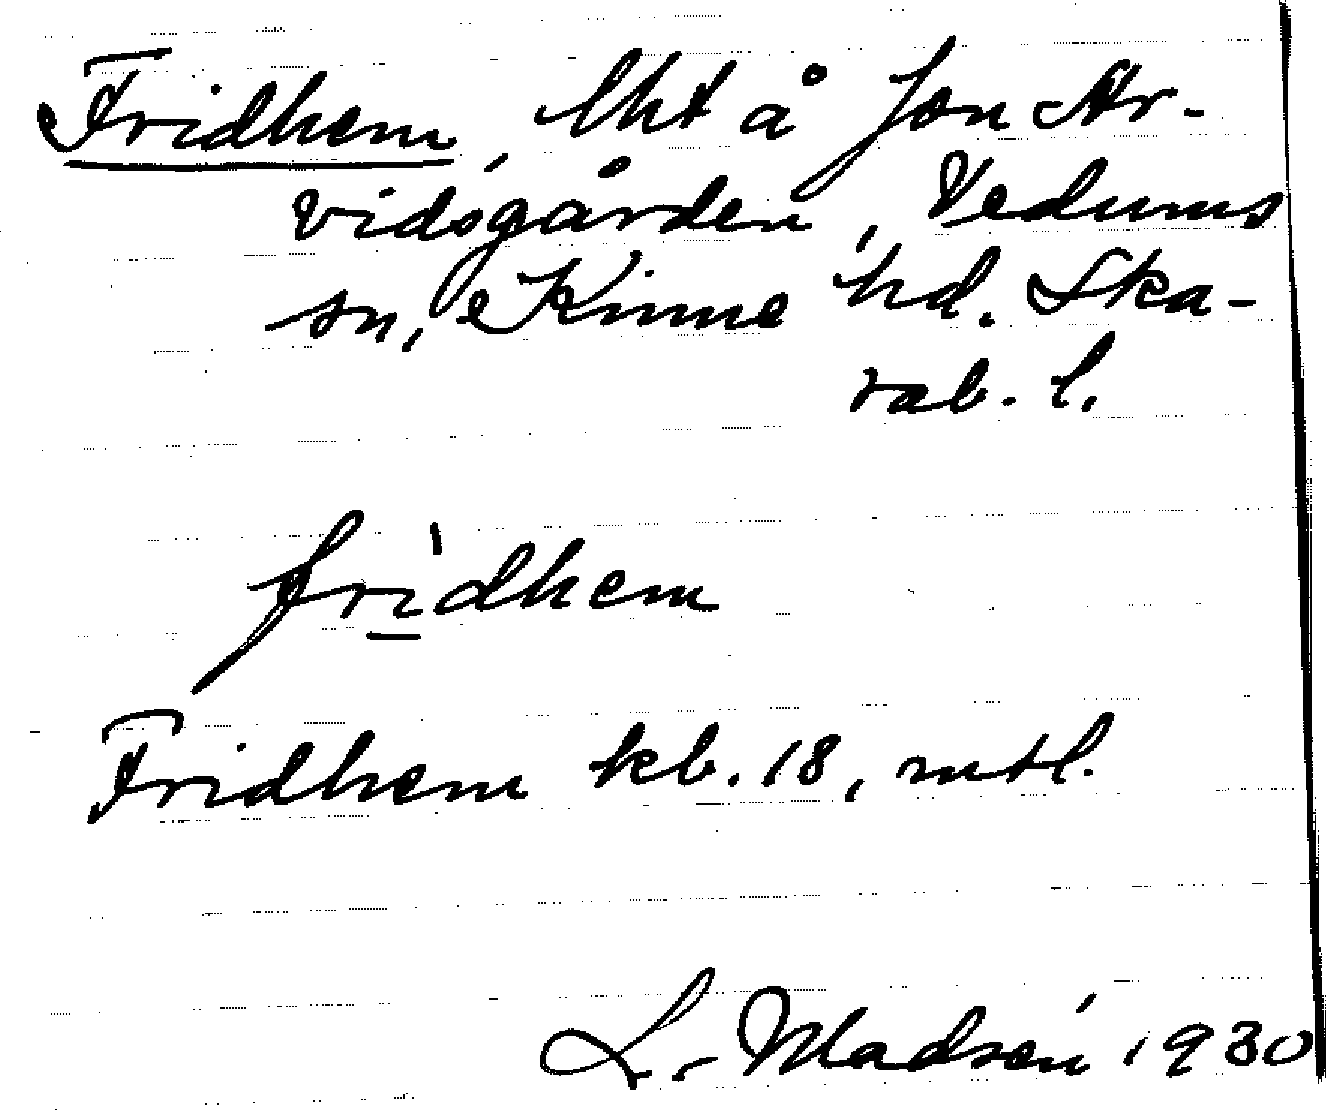 Fridhem, lht å Jon Ar-
vidsgården, Vedums
sn, Kinne hd. Ska-
rab. l.
fri̲dhem
Fridhem kb. 18, mtl.
L. Madsén 1930